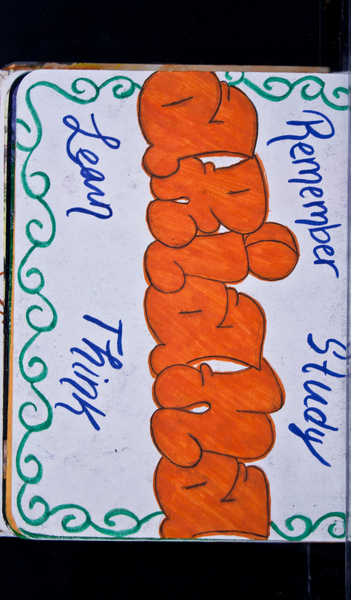 Remember Study
Learn Think